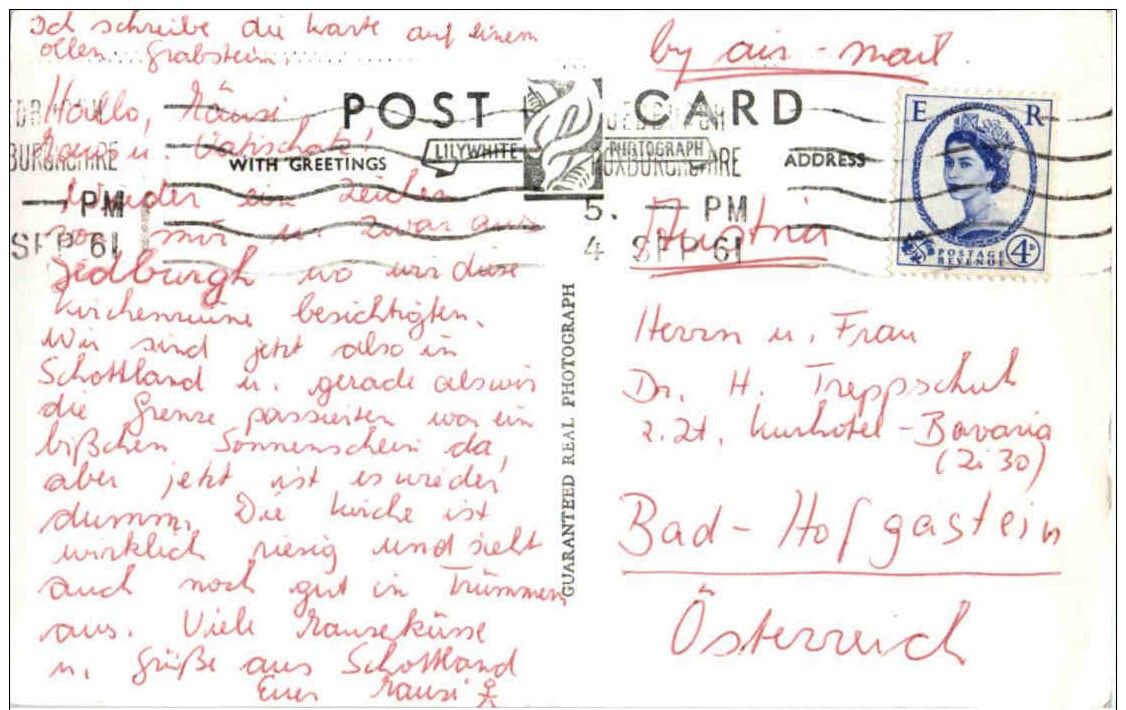 Ich schreibe die Karte auf einem
ollen Grabstein.
by air-mail
POST CARD
WITH GREETINGS
LILYWHITE PHOTOGRAPH
ADDRESS
E R
POSTAGE
REVENUE
4D
JEDBURGH
ROXBURGHSHIRE
5. — PM
4 SEP 61
— PM
Hallo,
u. Vatischatz!
Wieder ein Zeichen
von mir u. zwar aus
Jedburgh wo wir diese
Kirchenruine besichtigten.
Wir sind jetzt also in
Schottland u. gerade als wir
die Grenze passierten war ein
bißchen Sonnenschein da,
aber jetzt ist es wieder
dumm. Die Kirche ist
wirklich riesig und sieht
auch noch gut in Trümmern
aus. Viele Mauseküsse
u. Grüße aus Schottland
Euer Mausi
GUARANTEED REAL PHOTOGRAPH
Austria
Herrn u. Frau
Dr. H. Treppschuh
z. Zt. Kurhotel-Bavaria
(Zi 30)
Bad-Hofgastein
Österreich